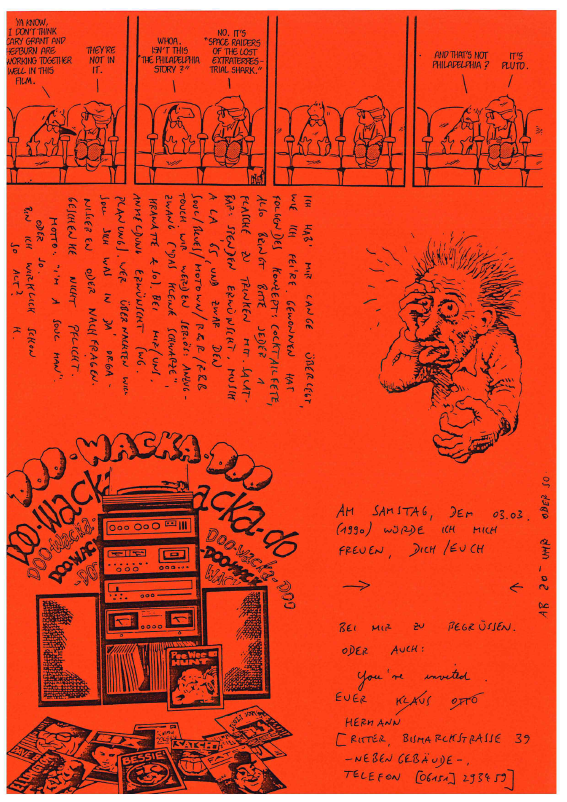 YA KNOW,
I DON'T THINK
CARY GRANT AND
HEPBURN ARE
WORKING TOGETHER
WELL IN THIS
FILM.
THEY'RE
NOT IN
IT.
WHOA.
ISN'T THIS
"THE PHILADELPHIA
STORY?"
NO. IT'S
"SPACE RAIDERS
OF THE LOST
EXTRATERRES-
TRIAL SHARK."
AND THAT'S NOT
PHILADELPHIA?
IT'S
PLUTO.
ICH HAB' MIR LANGE ÜBERLEGT,
WIE ICH FEIRE, GEWONNEN HAT
FOLGENDES KONZEPT: COCKTAILFETE,
ALSO BRINGT BITTE JEDER 1
FLASCHE ZU TRINKEN MIT. SALAT-
BAR: SPENDEN ERWÜNSCHT. MUSIK
A LA 65 UND ZWAR DEN
SOUL/BLUES/MOTOWN/R&R/R&B
TOUCH. WIR WERDEN SERIÖS: ANZUG-
ZWANG ("DAS KLEINE SCHWARZE",
KRAWATTE & SO). BEI MIR/UNS,
ANMELDUNG ERWÜNSCHT (WG.
PLANUNG). WER ÜBERNACHTEN WILL
SOLL SICH WAS IN DA ORGA-
NISIEREN ODER NACHFRAGEN.
GESCHENKE NICHT PFLICHT.
MOTTO: "I'M A SOUL MAN".
ODER SO.
BIN ICH WIRKLICH SCHON
SO ALT? H
DOO-WACKA-DOO
DOO-WACKA
WACKA-DO
DOO-WACKA-
DOO-WACKA-DOO
DOO-WACK
DOO-WACKA
Pee Wee
HUNT
BIX
SATCH
BESSIE
AM SAMSTAG, DEM 03.03.
(1990) WÜRDE ICH MICH
FREUEN, DICH/EUCH
AB 20 UHR ODER SO
BEI MIR ZU BEGRÜSSEN.
ODER AUCH:
You're invited.
EUER KLAUS OTTO
HERMANN
[RITTER, BISMARCKSTRASSE 39
-NEBENGEBÄUDE-,
TELEFON [06151] 293459]